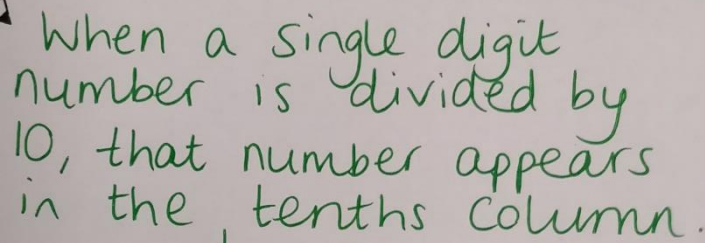 When a single digit
number is divided by
10, that number appears
in the tenths column.